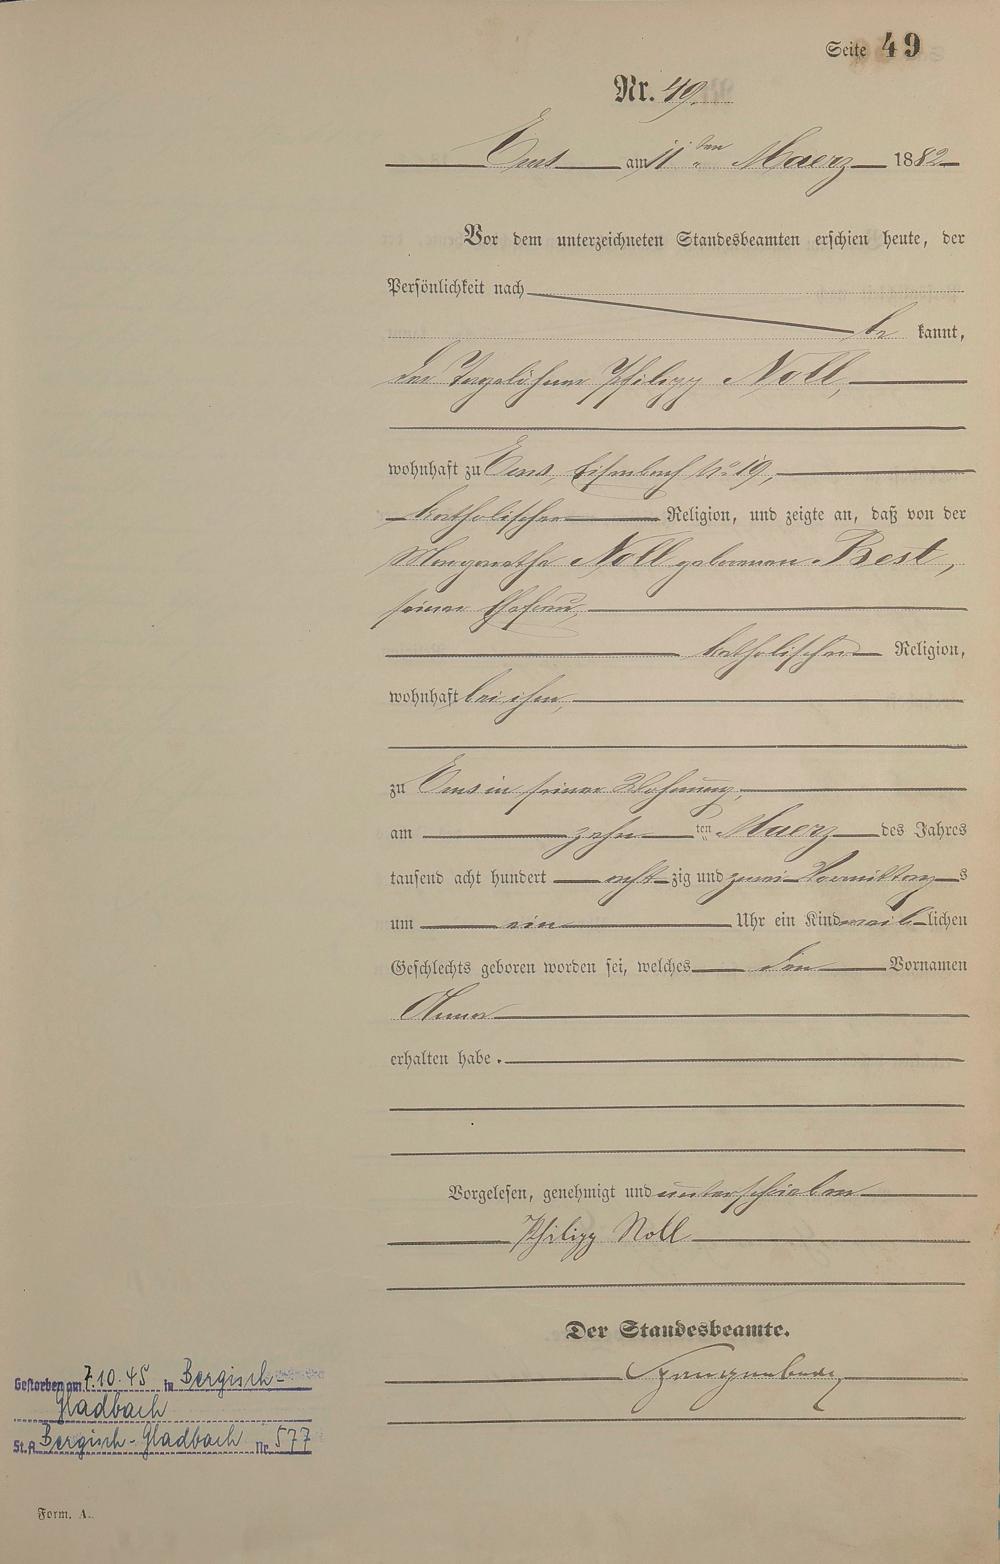 Seite 49
Nr. 49.
Ems am 11ten Maerz 1882
Vor dem unterzeichneten Standesbeamten erschien heute, der
Persönlichkeit nach
be kannt,
der Tagelöhner Philipp Noll,
wohnhaft zu Ems, Eisenbach No 19,
katholischer Religion, und zeigte an, daß von der
Margaretha Noll geborenen Best,
seiner Ehefrau,
katholischer Religion,
wohnhaft bei ihm,
zu Ems in seiner Wohnung,
am zehn ten Maerz des Jahres
tausend acht hundert acht zig und zwei Vormittags
um ein Uhr ein Kind weib lichen
Geschlechts geboren worden sei, welches den Vornamen
Anna
erhalten habe.
Vorgelesen, genehmigt und unterschrieben
Philipp Noll
Der Standesbeamte.
Spangenberg
Gestorben am 7.10.45 in Bergisch
Gladbach
St.A. Bergisch-Gladbach Nr. 577
Form. A.